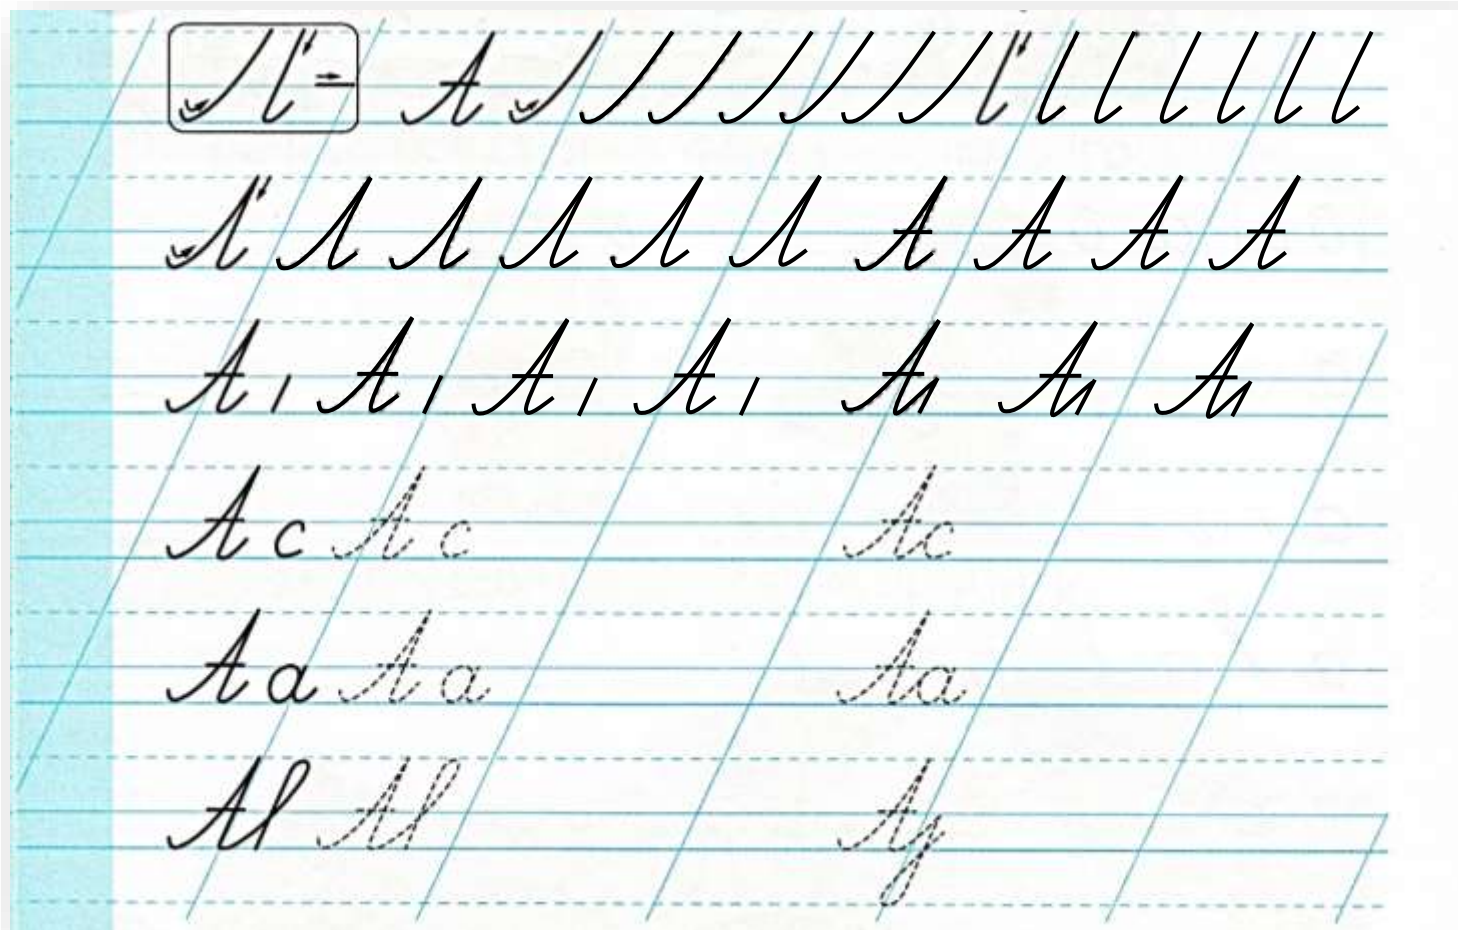 А
А А А А
А А А А А А А
А с А с Ас
А а А а Аа
А А Ау